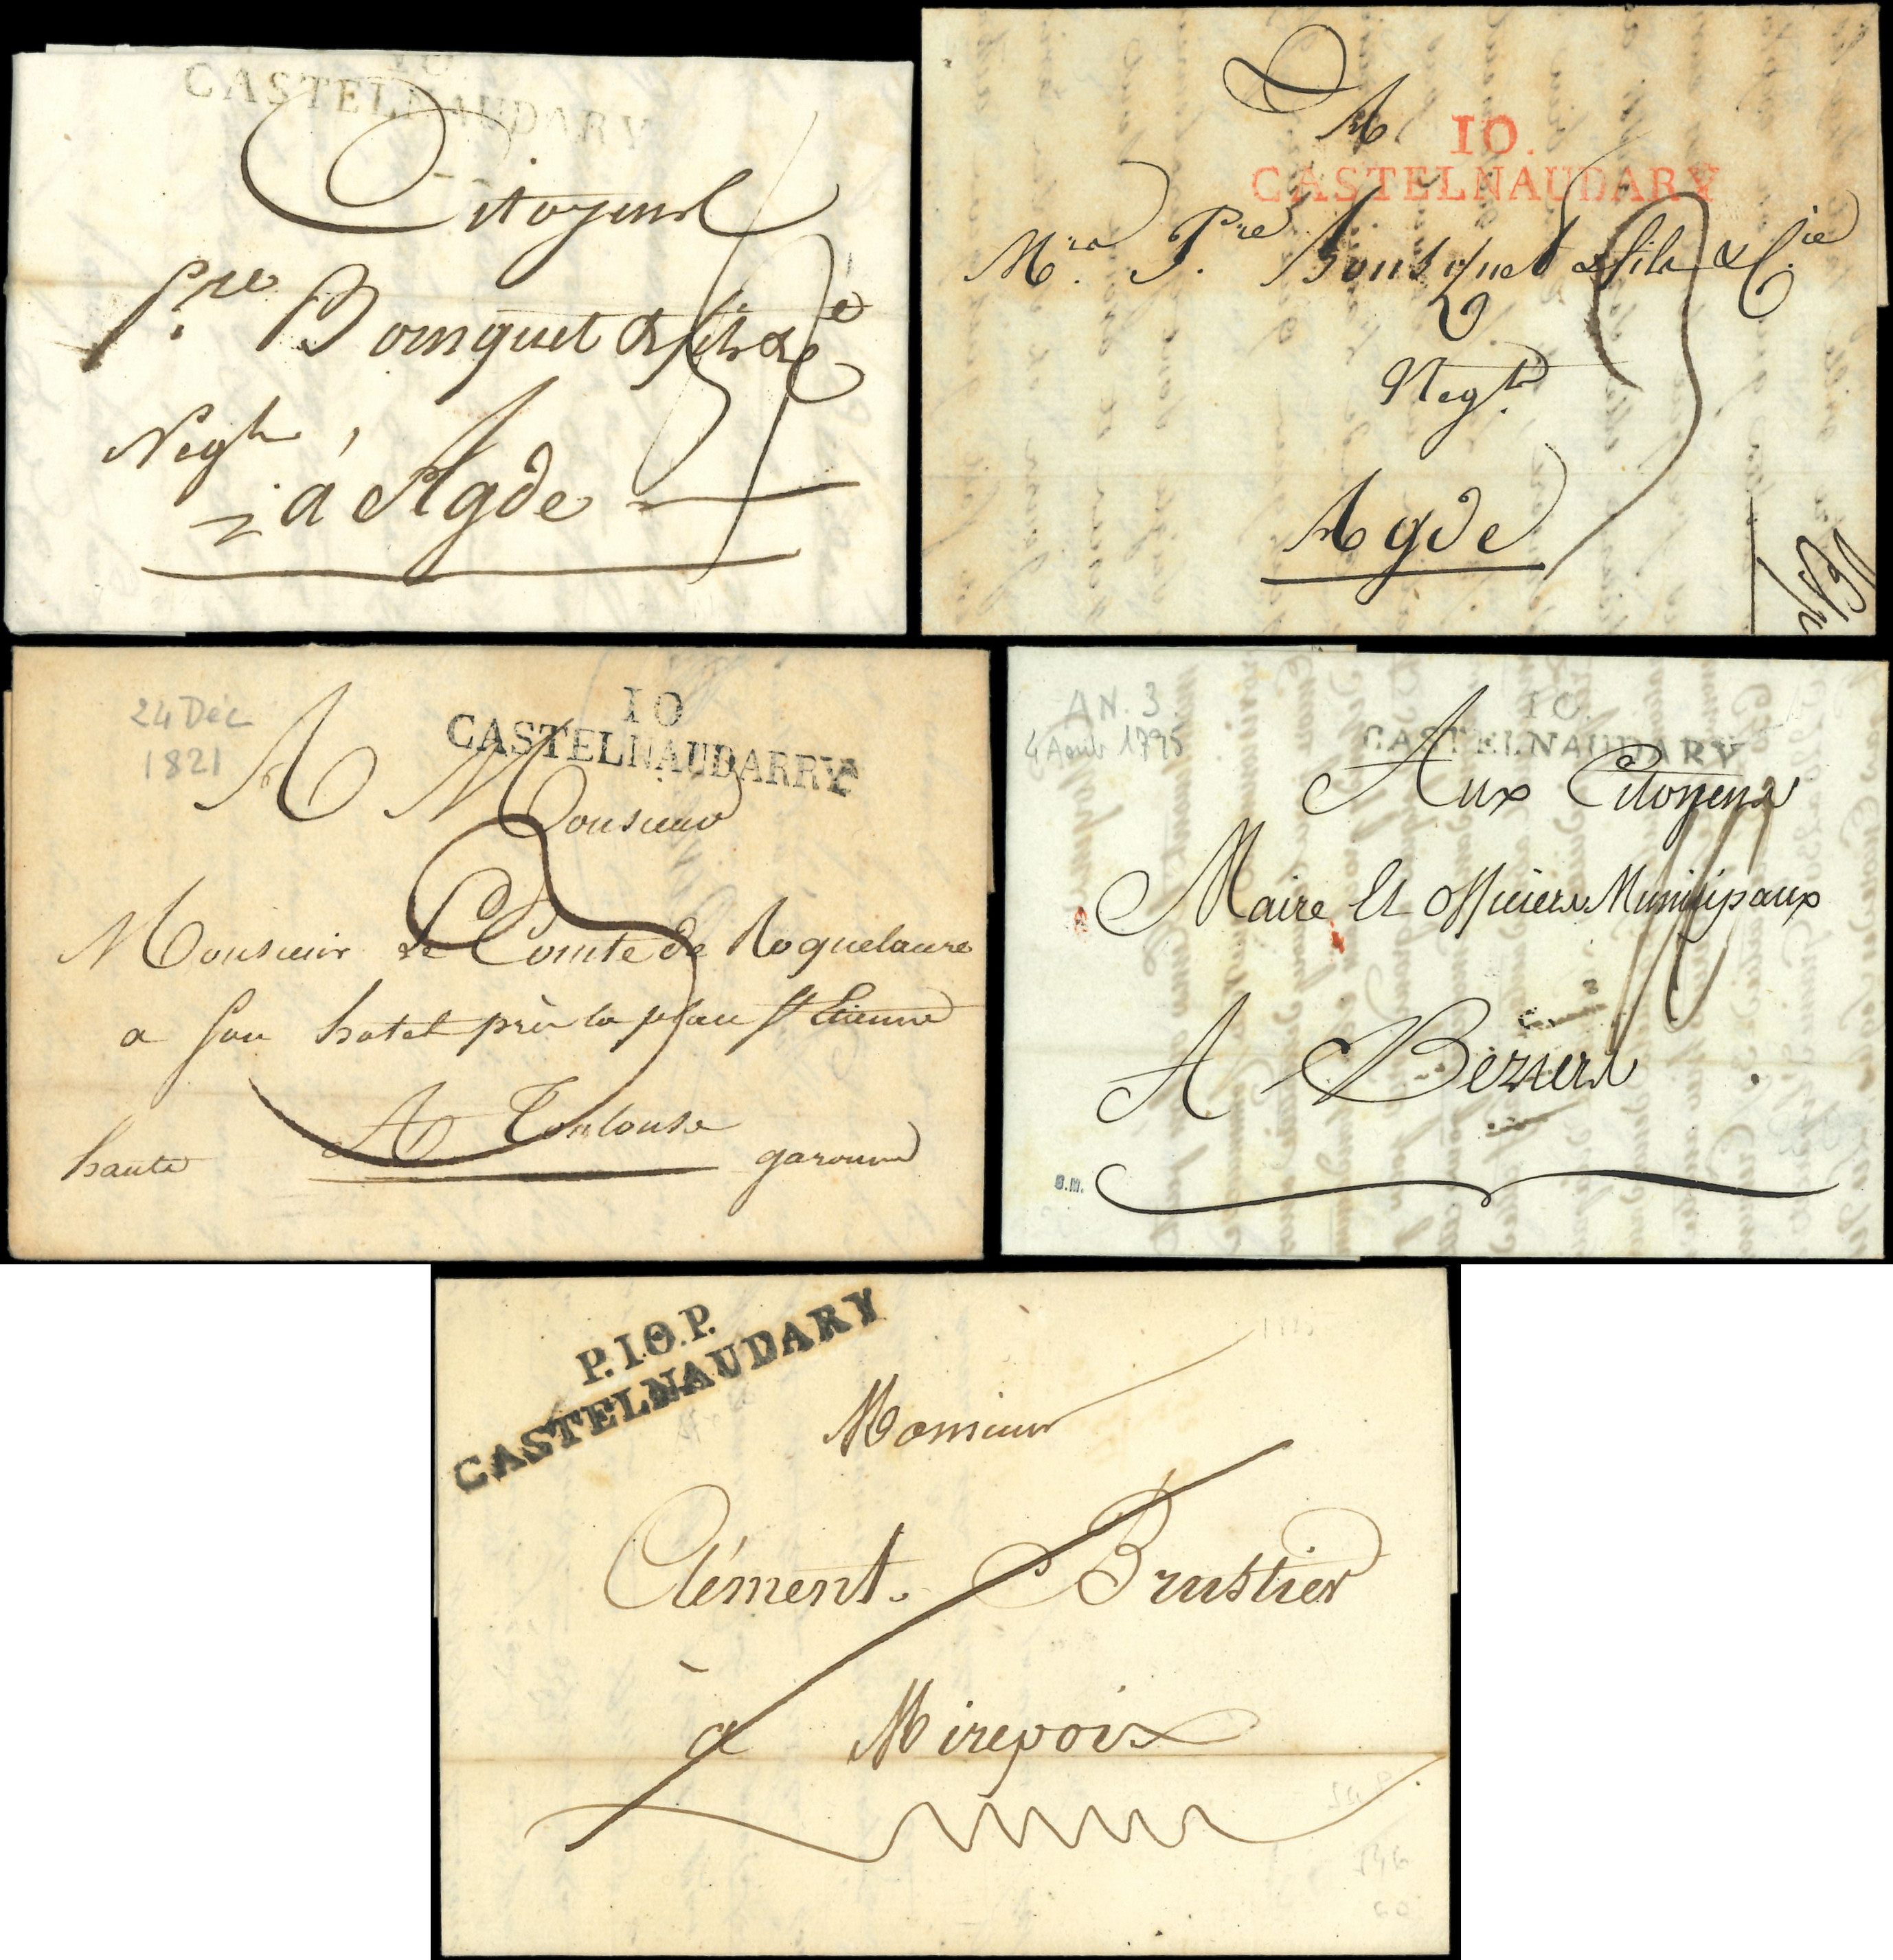 10
CASTELNAUDARY
Citoyens
Pre Bousquet & fils & Ce
Negts
à Agde
10.
CASTELNAUDARY
A
Mrs Pre Bousquet & fils & Cie
Negts
Agde
24 Déc
1821
10
CASTELNAUDARRY
A Monsieur
Monsieur Le Comte de Roquelaure
a son hotel près la place St Etienne
A Toulouse
haute garonne
AN. 3
4 Août 1795
10
CASTELNAUDARY
Aux Citoyens
Maire Et officiers Municipaux
A Beziers
B.M.
P.10.P.
CASTELNAUDARY
Monsieur
Clément. Brustier
à Mirepoix